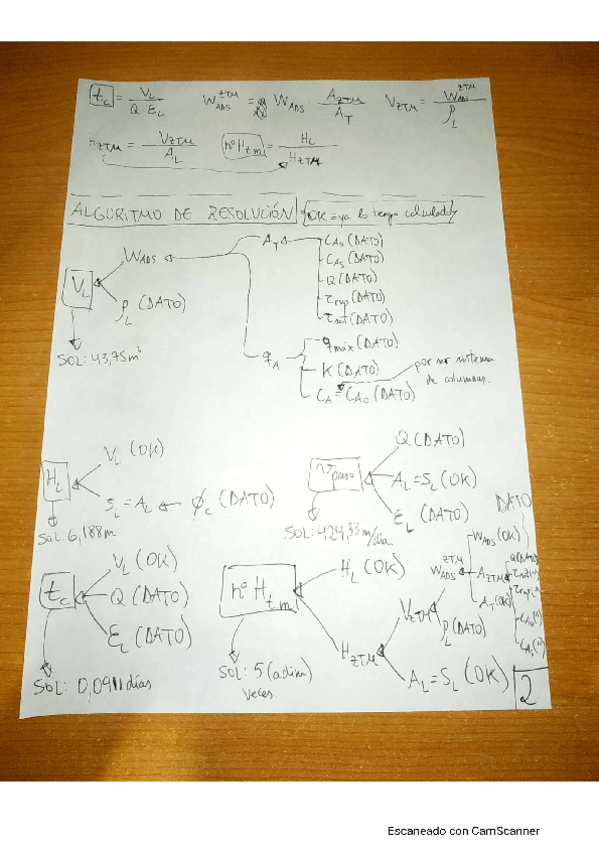 t_c = V_L / (Q ε_L)    W_ADS^ZTM = W_ADS · A_ZTM / A_T    V_ZTM = W_ADS^ZTM / ρ_L
H_ZTM = V_ZTM / A_L    nº H_t.m. = H_L / H_ZTM
ALGORITMO DE RESOLUCIÓN (OK = ya lo tengo calculado)
V_L
W_ADS
A_T
C_A0 (DATO)
C_AS (DATO)
Q (DATO)
τ_rup (DATO)
τ_sat (DATO)
ρ_L (DATO)
q_A
q_máx (DATO)
K (DATO)
C_A = C_A0 (DATO)
por ser sistema
de columnas.
SOL: 43,75 m³
H_L
V_L (OK)
S_L = A_L ← φ_c (DATO)
SOL: 6,188 m
v_paso
Q (DATO)
A_L = S_L (OK)
ε_L (DATO)
SOL: 424,33 m/día
t_c
V_L (OK)
Q (DATO)
ε_L (DATO)
SOL: 0,0911 días
nº H_t.m
H_L (OK)
H_ZTM
V_ZTM
W_ADS^ZTM
W_ADS (OK)
A_ZTM
A_T (OK)
DATO
Q (DATO)
ρ_L (DATO)
A_L = S_L (OK)
SOL: 5 (adim)
veces
2
Escaneado con CamScanner